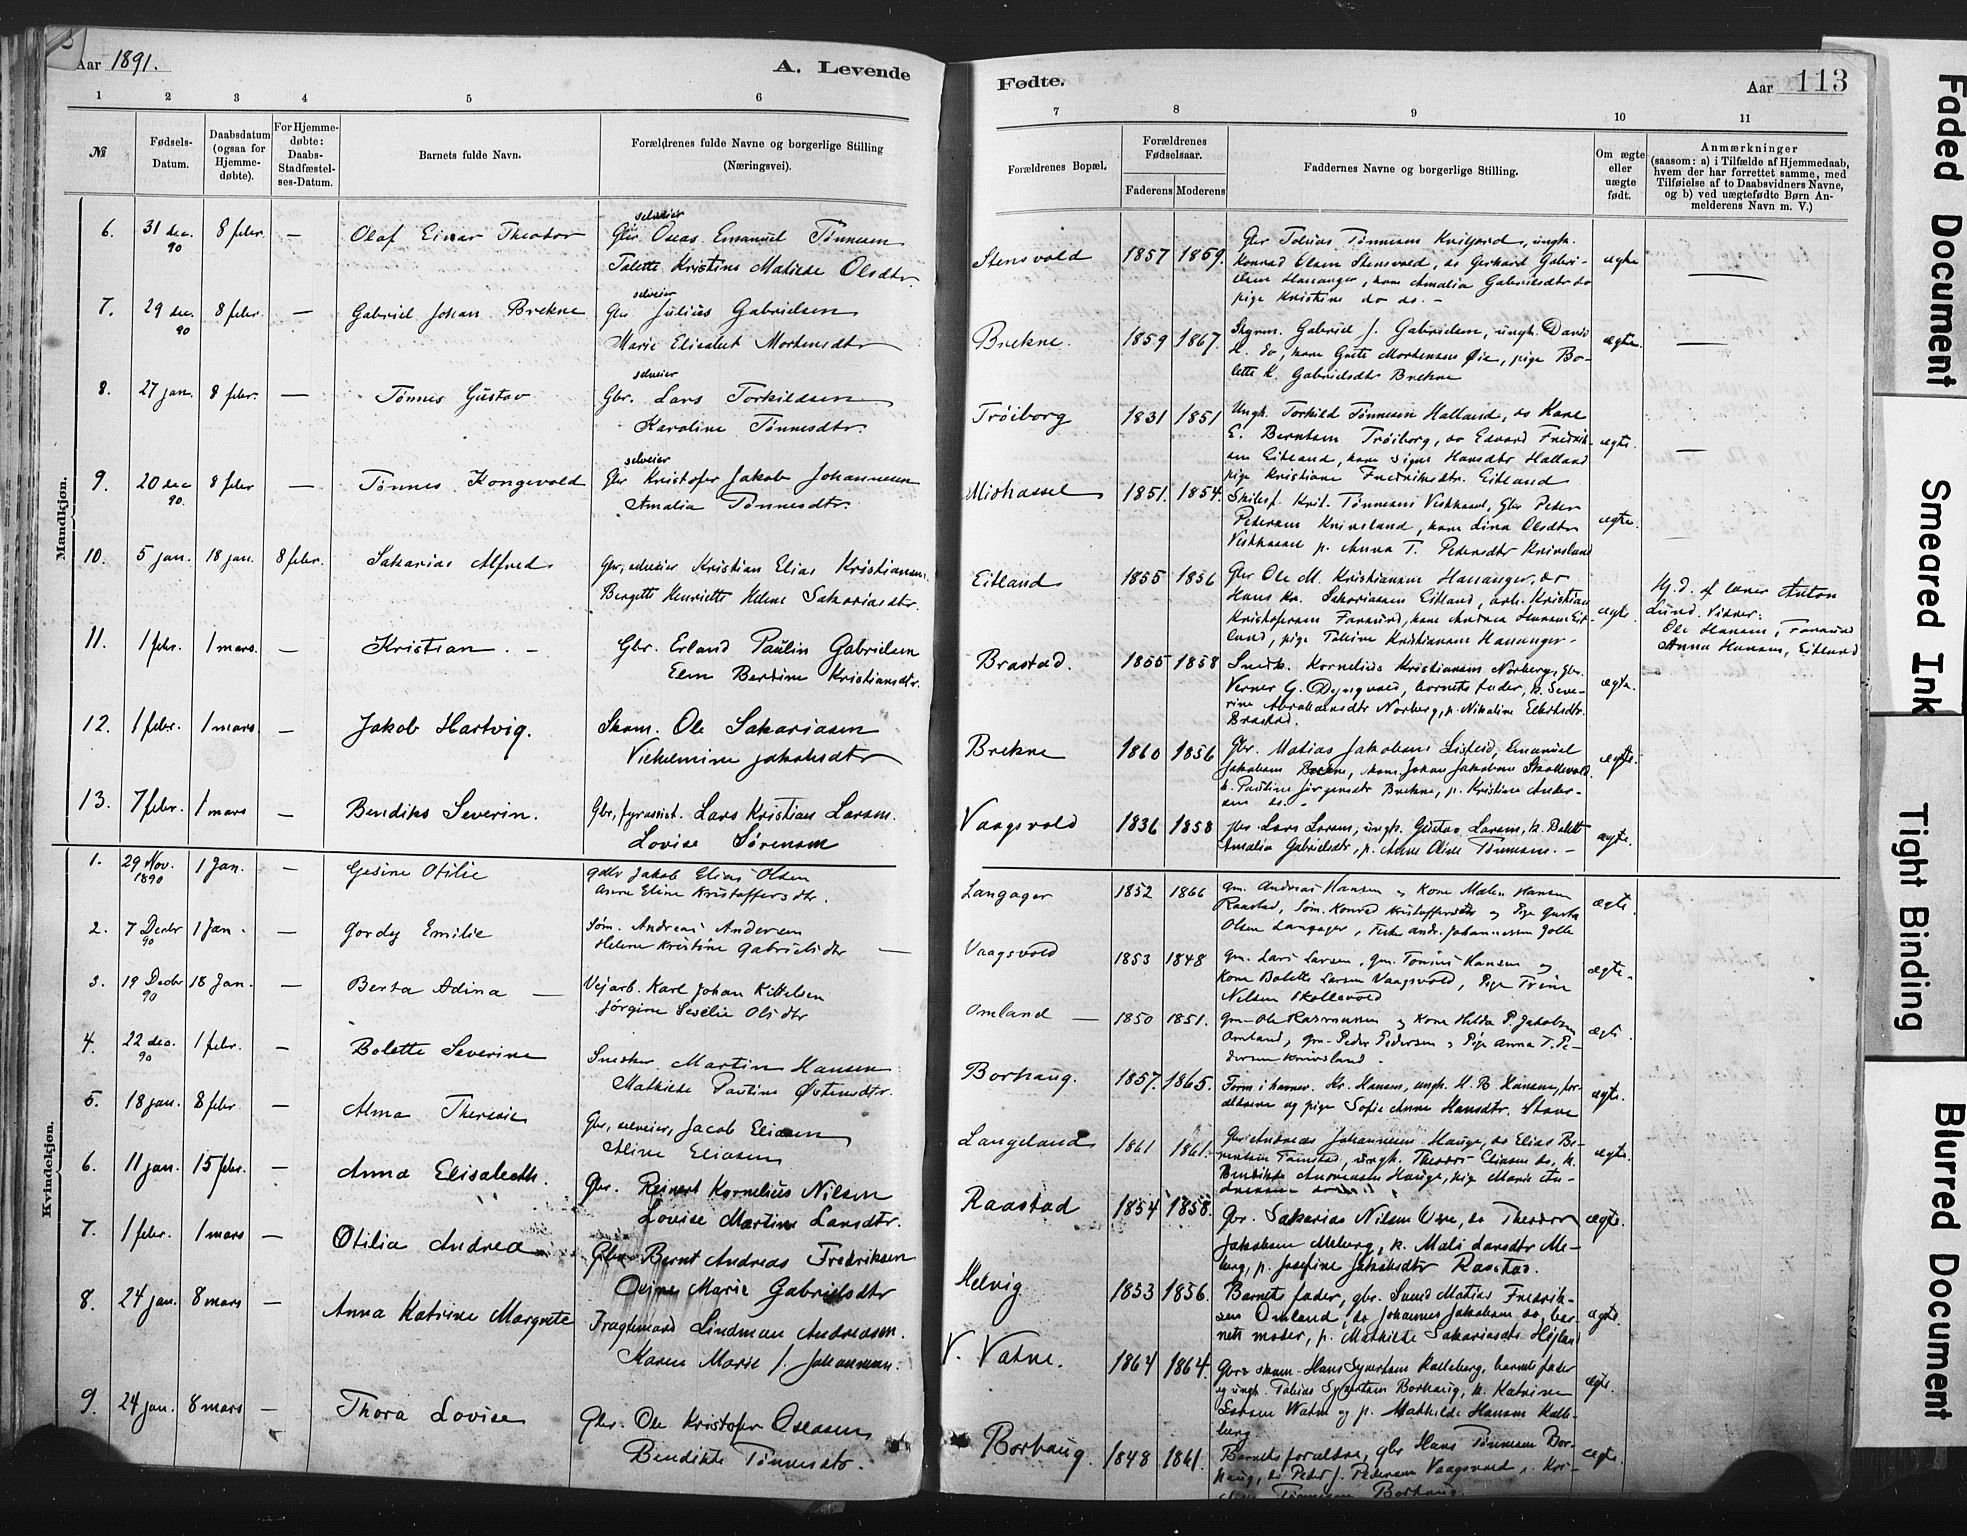 Aar 1891.
A. Levende
Fødte.
Aar 113
1 2 3 4 5 6
7 8 9 10 11
№
Fødsels-Datum.
Daabsdatum (ogsaa for Hjemmedøbte).
For Hjemmedøbte: Daabs-Stadfæstelses-Datum.
Barnets fulde Navn.
Forældrenes fulde Navne og borgerlige Stilling (Næringsvei).
Forældrenes Bopæl.
Forældrenes Fødselsaar.
Faderens Moderens
Faddernes Navne og borgerlige Stilling.
Om ægte eller uægte født.
Anmærkninger
(saasom: a) i Tilfælde af Hjemmedaab,
hvem der har forrettet samme, med
Tilføielse af to Daabsvidners Navne,
og b) ved uægtefødte Børn Anmelderens Navn m. V.)
Mandkjøn.
6. 31 dec. 90 8 febr. — Olaf Einar Theodor
selveier
Gbr. Oseas Emanuel Tønnesen
Talette Kristine Matilde Olsdtr.
Stensvold 1857 1859.
Gbr Tobias Tønnesen
Konrad Olsen Stensvold, do Gerhard Gabri-
pige Kristine do do. -
ægte
7. 29 dec. 90 8 febr. — Gabriel Johan Brekne
selveier
Gbr Julius Gabrielsen
Marie Elisabet Mortensdtr
Brekne. 1859 1867.
Gabriel J. Gabrielsen, ungk. David
kone Gurte Mortensen Øie, pige Bo-
lette K. Gabrielsdtr Brekne
ægte.
8. 27 jan. 8 febr. — Tønnes Gustav
selveier
Gbr. Lars Torkildsen
Karoline Tønnesdtr.
Trøiborg 1831 1851
Ungk. Torkild Tønnesen Halland, do Kare
E. Berntsen Trøiborg, do Edvard Fredrik-
sen Eitland, kone Signe Hansdtr Halland
pige Kristiane Fredriksdtr. Eitland
ægte.
9. 20 dec 90. 8 febr — Tønnes Kongevold
selveier
Gbr Kristofer Jakob Johannesen
Amalia Tønnesdtr.
Midhassel 1851. 1854.
Tønnesens Vesthassel, Gbr Peter
Petersen Knivsland, kone Lina Olsdtr
Vesthassel p. Anna T. Petersdtr Knivsland
ægte.
10. 5 jan. 18 jan. 8 febr. Sakarias Alfred
Gbr, selveier Kristian Elias Kristiansen.
Bergitte Henriette Helene Sakariasdtr.
Eitland 1855 1856
Gbr Ole M. Kristiansen Hananger, do
Hans Kr. Sakariassen Eitland, arb. Kristian
Kristofersen Farsund, kone Andrea Hansen Eit-
land, pige Tobine Kristiansen Hananger -
ægte.
Hj.d. af lærer Anton
Lund. Vidner:
Ole Hansen, Farsund
Anna Hansen, Eitland
11. 1 febr. 1 mars. — Kristian. -
Gbr. Erland Paulin Gabrielsen
Elen Berdine Kristiansdtr.
Brastad. 1855 1858
Snedk. Kornelius Kristiansen Norberg, Gbr.
Verner G. Dyngvold, barnets fader, k. Seve-
rine Abrahamsdtr Norberg, p. Nikoline Eilertsdtr.
Brastad.
ægte.
12. 1 febr. 1 mars — Jakob Hartvig.
Skom. Ole Sakariasen
Vilhelmine Jakobsdtr
Brekne 1860 1856
Gbr. Matias Jakobsen Listeid, Emanuel
Jakobsen Brekne, skom. Johan Jakobsen Skollevold.
k. Pauline Jørgensdtr Brekne, p. Kristine Ander-
sen do. -
ægte.
13. 7 febr. 1 mars — Bendiks Severin.
Gbr, fyrassist. Lars Kristian Larsen.
Lovise Sørensen
Vaagsvold 1836 1858
gbr Lars Larsen, ungk. Gustav Larsen, k. Bolette
Amalia Gabrielsdtr, p. Anne Oline Tønnesen. -
ægte.
Kvindekjøn.
1. 29 Nov. 1890 1 Jan. — Gesine Otilie
Jakob Elias Olsen
Anne Eline Kristoffersdtr.
Langager 1852 1866
gm. Andreas Hansen og Kone Malen Hansen
Raastad, Søm. Konrad Kristoffersdtr og Pige Gurta
Olsen Langager, Fisker Andr. Johannessen Jolle
ægte.
2. 7 Decbr 90 1 Jan. — Gordy Emilie
Søm. Andreas Andersen
Helene Kristine Gabrielsdtr —
Vaagsvold 1853 1848
gm. Lars Larsen, gm. Tønnes Hansen og
Kone Bolette Larsen Vaagsvold, Pige Trine
Nilsen Skollevold
ægte.
3. 19 Decbr 90 18 Jan. — Berta Adina —
Vejarb. Karl Johan Kittelsen
Jørgine Sesilie Olsdtr
Omland — 1850 1851.
gm. Ole Rasmussen og Kone Helda P. Jakobsen
Omland, gm. Peder Pedersen og Pige Anna T. Pe-
dersen Knivsland.
ægte.
4. 22 dec. 90 1 febr. — Bolette Severine
Snedker Martin Hansen
Mathilde Pauline Østensdtr.
Borhaug. 1857. 1865.
Form. i havnev. Kr. Hansen, ungk. H. B. Hansen, for-
ældrene og pige Sofie Anne Hansdtr. Stave
ægte.
5. 18 jan. 8 febr — Alma Theresie
Gbr, selveier, Jacob Eliasen
Aline Eliasen
Langeland 1861 1861.
Gbr Andreas Johannesen Hauge, do Elias Be-
rentsen Tømstad, ungk. Theodor Eliasen do, k.
Bendikte Andreassen Hauge, pige Marie An-
ægte.
6. 11 jan. 15 febr. — Anna Elisabeth.
Gbr. Reinert Kornelius Nilsen
Lovise Martine Larsdtr.
Raastad 1854 1858.
Gbr. Sakarias Nilsen Ore, do Theodor
Jakobsen Meberg, k. Mali Larsdtr Me-
berg, p. Josefine Jakobsdtr Raastad.
ægte.
7. 1 febr. 1 mars — Otilia Andrea
Gbr Bernt Andreas Fredriksen
Oline Marie Gabrielsdtr
Helvig 1853 1856.
Barnets fader, gbr. Svend Matias Fredrik-
sen Omland, do Johannes Jakobsen do, bar-
nets moder, p. Mathilde Sakariasdtr Højland
ægte.
8. 24 jan. 8 mars — Anna Katrine Margrete
Fragtemand Lindman Andreasen.
Karen Marie J. Johannesen.
V. Vatne. 1864 1864.
Gbr & skom. Hans Syvertsen Kalleberg, barnets fader
og ungk. Tobias Syvertsen Borhaug, k. Katrine
Larsen Vatne og p. Mathilde Hansen Kalle-
berg
ægte.
9. 24 jan. 8 mars — Thora Lovise
Gbr. Ole Kristofer Oseasen
Bendikte Tønnesdtr.
Borhaug. 1848 1861.
Barnets forældre, gbr Hans Tønnesen Bor-
haug, do Peder J. Pedersen Vaagsvold
Tønnesen Borhaug.
ægte.
Faded Document
Smeared Ink
Tight Binding
Blurred Document